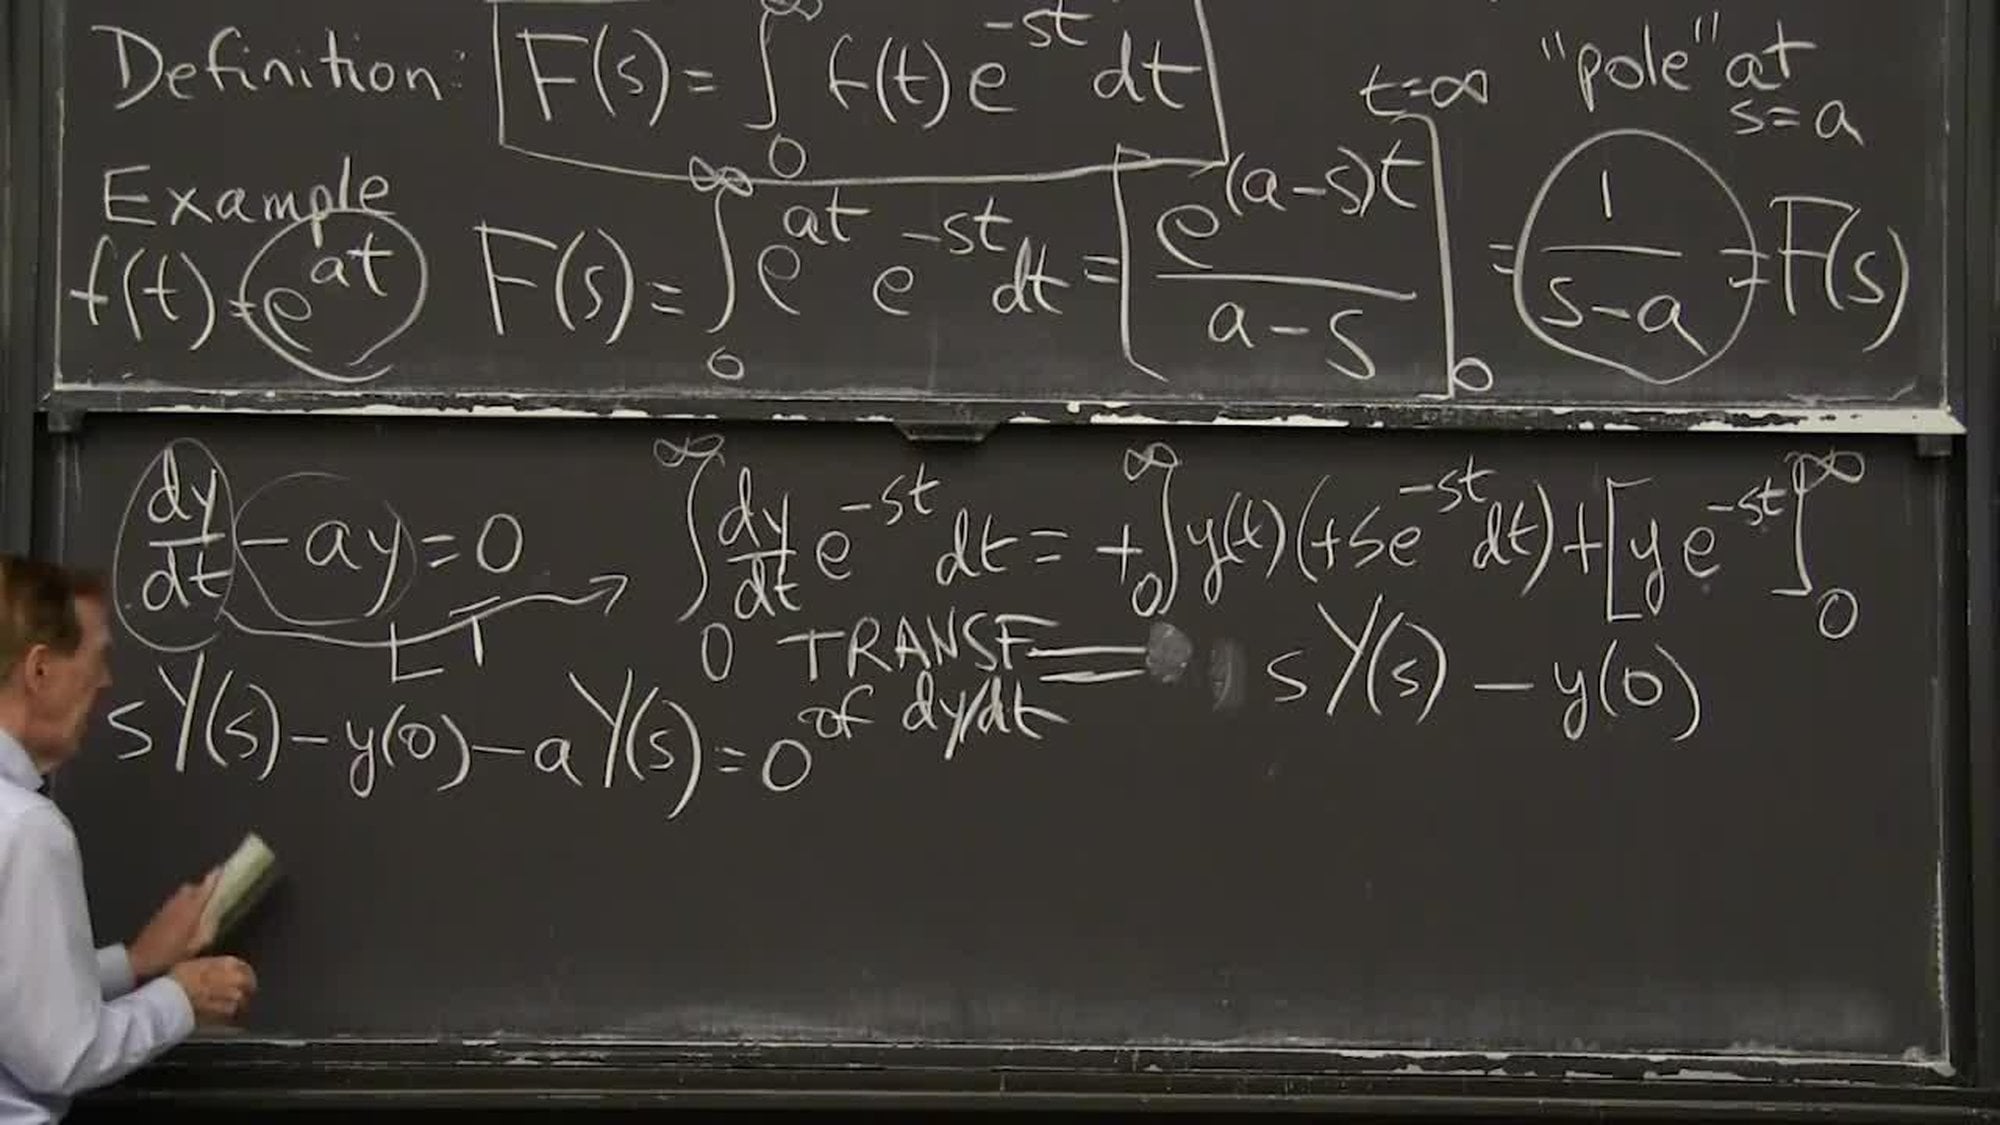 Definition: F(s) = ∫₀^∞ f(t) e^{-st} dt
"pole" at
s = a
Example
f(t) = e^{at} F(s) = ∫₀^∞ e^{at} e^{-st} dt = [e^{(a-s)t} / (a-s)]₀^{t=∞} = 1/(s-a) = F(s)
dy/dt - ay = 0 ∫₀^∞ dy/dt e^{-st} dt = +∫₀^∞ y(t) (+s e^{-st} dt) + [y e^{-st}]₀^∞
LT
TRANSF = sY(s) - y(0)
of dy/dt
sY(s) - y(0) - aY(s) = 0